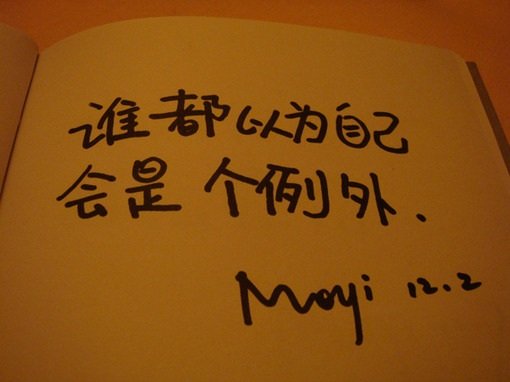 谁都以为自己
会是个例外、
Moyi 12.2